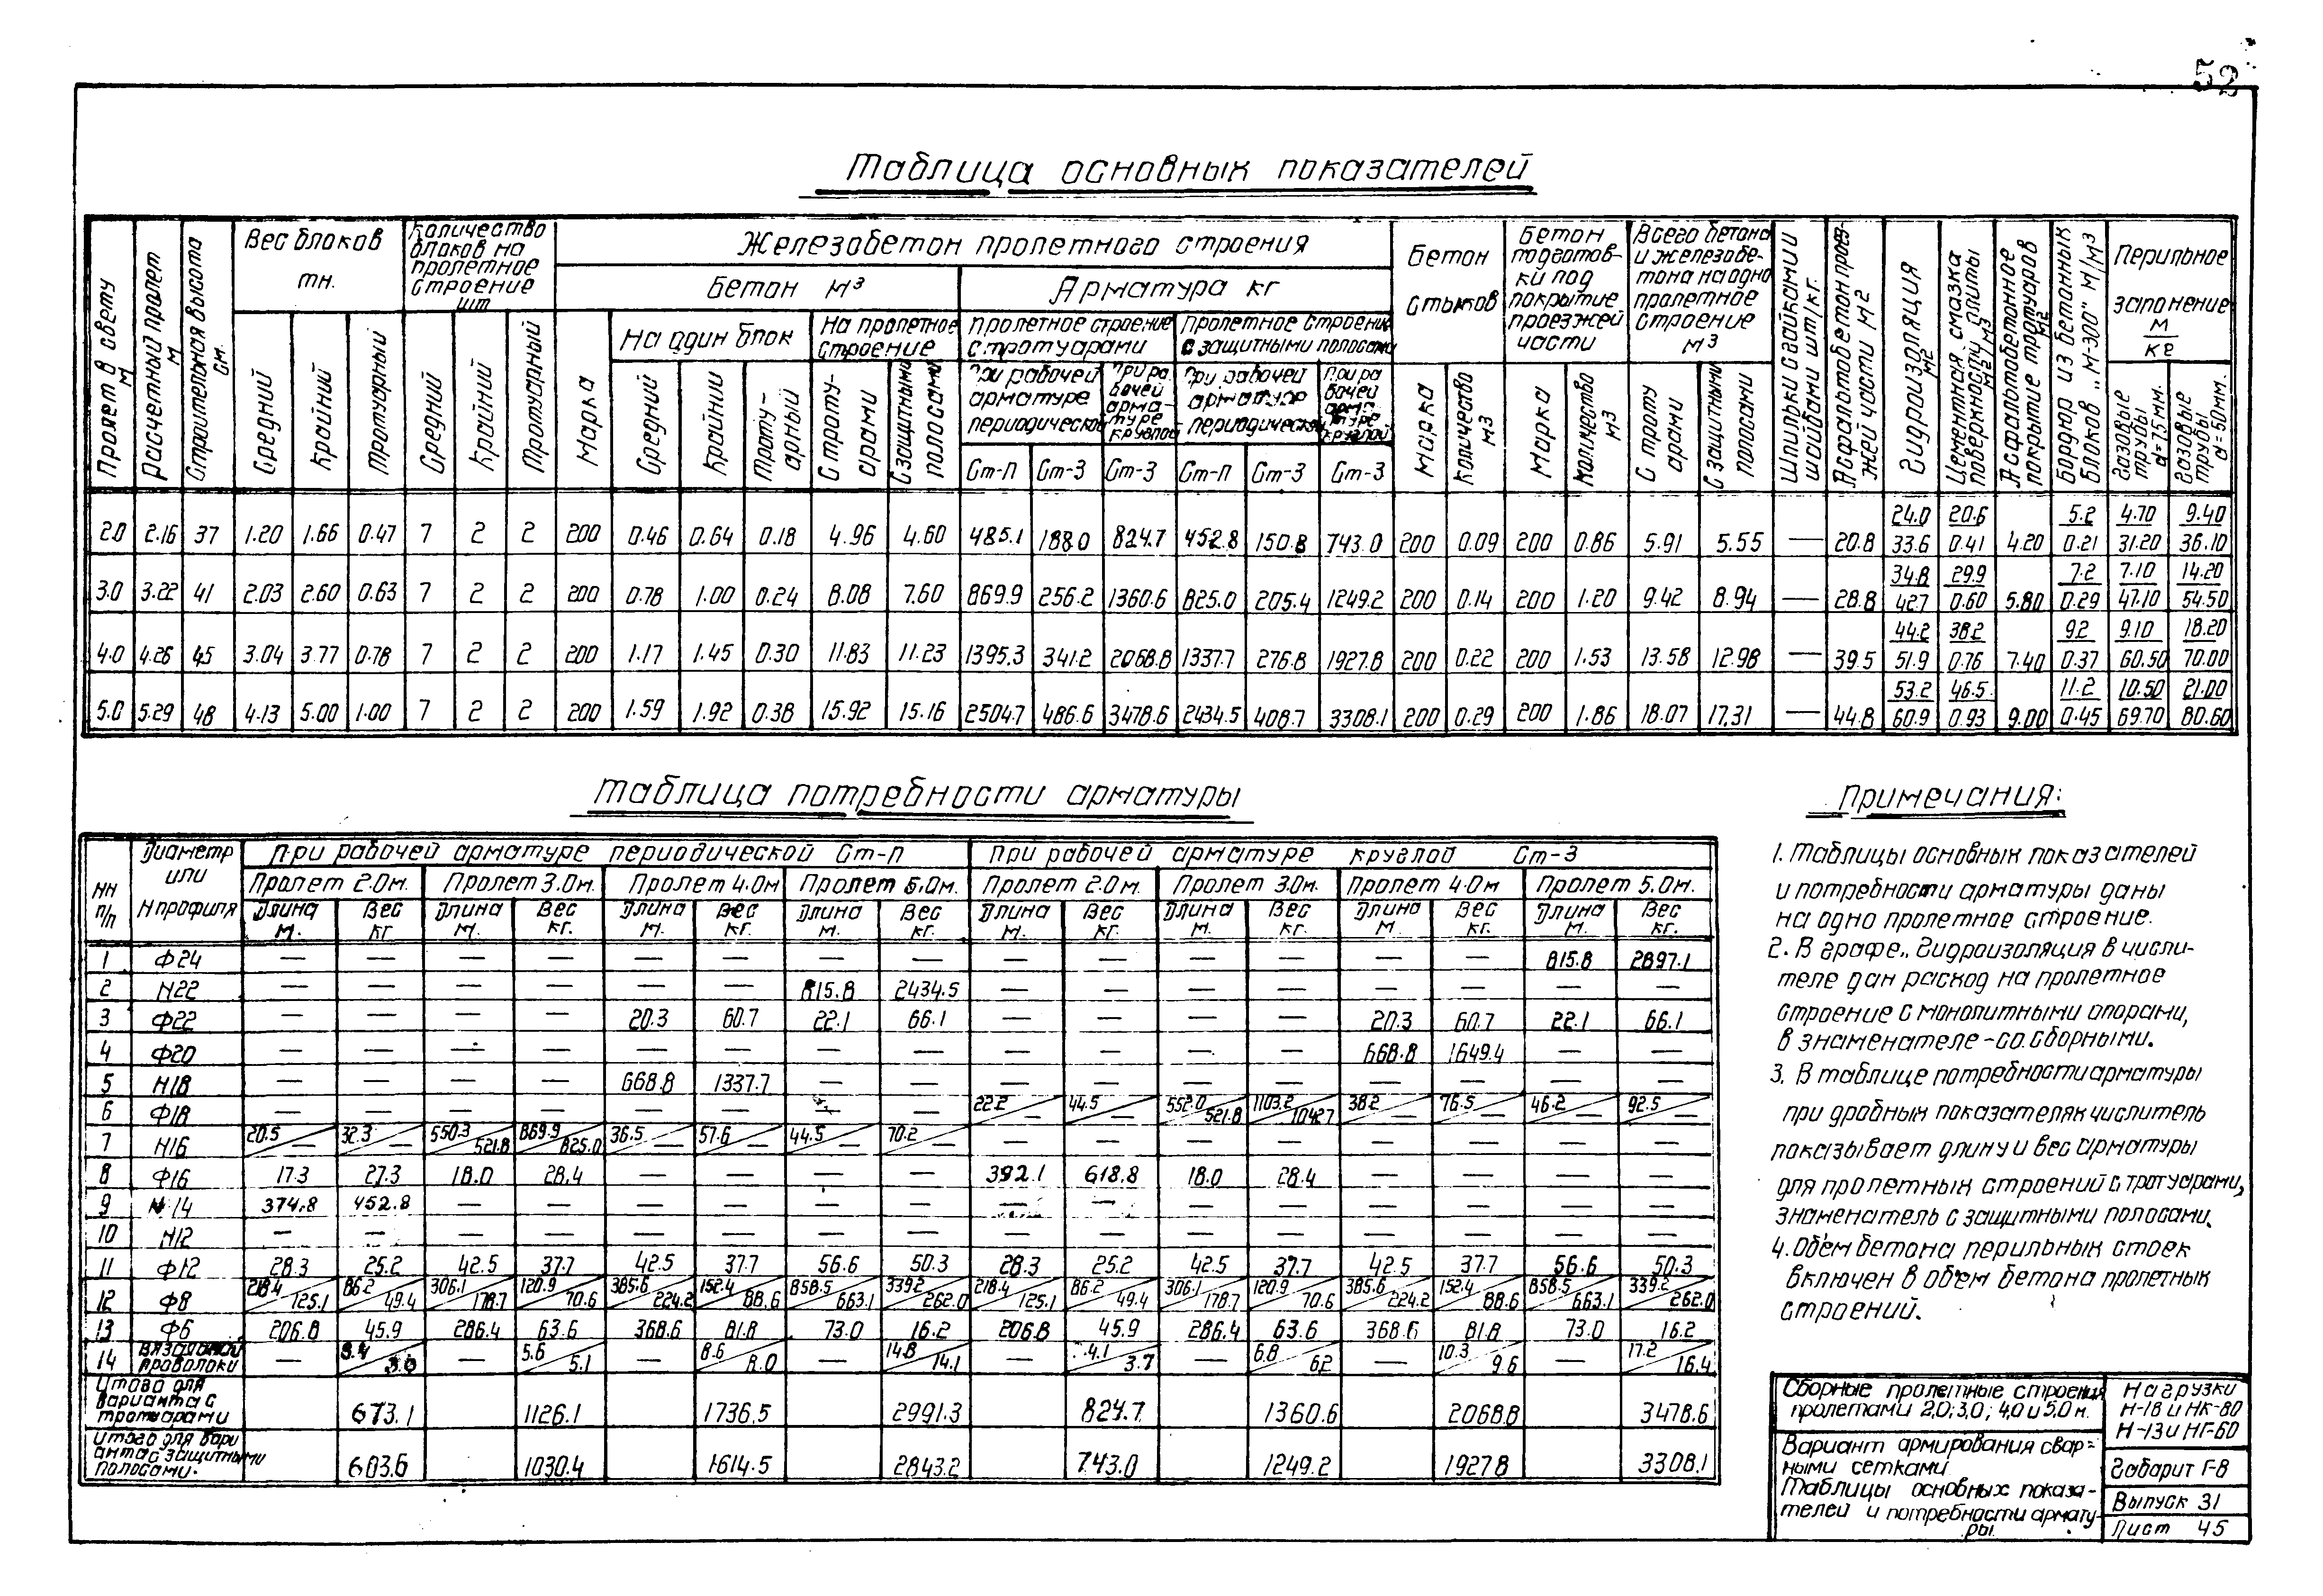 52
Таблица основных показателей
Пролет в свету м
Расчетный пролет м
Строительная высота см.
Вес блоков тн.
Средний
Крайний
Тротуарный
Количество блоков на пролетное строение шт
Средний
Крайний
Тротуарный
Железобетон пролетного строения
Бетон м³
Марка
На один блок
Средний
Крайний
Тротуарный
На пролетное строение
С тротуарами
С защитными полосами
Арматура кг
Пролетное строение с тротуарами
При рабочей арматуре периодической
Ст-П Ст-3
При рабочей арматуре круглой
Ст-3
Пролетное строение с защитными полосами
При рабочей арматур периодической
Ст-П Ст-3
При рабочей арматуре круглой
Ст-3
Бетон стыков
Марка
Количество м3
Бетон подготовки под покрытие проезжей части
Марка
Количество м3
Всего бетона и железобетона на одно пролетное строение м3
С тротуарами
С защитными полосами
Шпильки с гайками и шайбами шт/кг.
Асфальтобетон проезжей части м2
Гидроизоляция м2
Цементная смазка поверхности плиты м2 м3
Асфальтобетонное покрытие тротуаров м2
Бордюр из бетонных блоков „М-300" м/м3
Перильное заполнение м/кг
Газовые трубы d=75мм.
Газовые трубы d=50мм.
2.0 2.16 37 1.20 1.66 0.47 7 2 2 200 0.46 0.64 0.18 4.96 4.60 485.1 188.0 824.7 452.8 150.8 743.0 200 0.09 200 0.86 5.91 5.55 — 20.8 24.0/33.6 20.6/0.41 4.20 5.2/0.21 4.70/31.20 9.40/36.10
3.0 3.22 41 2.03 2.60 0.63 7 2 2 200 0.78 1.00 0.24 8.08 7.60 869.9 256.2 1360.6 825.0 205.4 1249.2 200 0.14 200 1.20 9.42 8.94 — 28.8 34.8/42.7 29.9/0.60 5.80 7.2/0.29 7.10/47.10 14.20/54.50
4.0 4.26 45 3.04 3.77 0.78 7 2 2 200 1.17 1.45 0.30 11.83 11.23 1395.3 341.2 2068.8 1337.7 276.8 1927.8 200 0.22 200 1.53 13.58 12.98 — 39.5 44.2/51.9 38.2/0.76 7.40 9.2/0.37 9.10/60.50 18.20/70.00
5.0 5.29 48 4.13 5.00 1.00 7 2 2 200 1.59 1.92 0.38 15.92 15.16 2504.7 486.6 3478.6 2434.5 408.7 3308.1 200 0.29 200 1.86 18.07 17.31 — 44.8 53.2/60.9 46.5/0.93 9.00 11.2/0.45 10.50/69.70 21.00/80.60
Таблица потребности арматуры
НН п/п
Диаметр или Н профиля
При рабочей арматуре периодической Ст-П
При рабочей арматуре круглой Ст-3
Пролет 2.0м. Пролет 3.0м. Пролет 4.0м Пролет 5.0м. Пролет 2.0м. Пролет 3.0м. Пролет 4.0м Пролет 5.0м.
Длина м. Вес кг Длина м. Вес кг. Длина м. Вес кг. Длина м. Вес кг. Длина м. Вес кг. Длина м. Вес кг. Длина м. Вес кг. Длина м. Вес кг.
1 Ф24 — — — — — — — — — — — — — — 815.8 2897.1
2 Н22 — — — — — — 815.8 2434.5 — — — — — — — —
3 Ф22 — — — — 20.3 60.7 22.1 66.1 — — — — 20.3 60.7 22.1 66.1
4 Ф20 — — — — — — — — — — — — 668.8 1649.4 — —
5 Н18 — — — — 668.8 1337.7 — — — — — — — — — —
6 Ф18 — — — — — — — — 22.2/— 44.5/— 552.0/521.8 1103.2/1042.7 38.2/— 76.5/— 46.2/— 92.5/—
7 Н16 20.5/— 32.3/— 550.3/521.8 869.9/825.0 36.5/— 57.6/— 44.5/— 70.2/— — — — — — — — —
8 Ф16 17.3 27.3 18.0 28.4 — — — — 392.1 618.8 18.0 28.4 — — — —
9 №14 374.8 452.8 — — — — — — — — — — — — — —
10 Н12 — — — — — — — — — — — — — — — —
11 Ф12 28.3 25.2 42.5 37.7 42.5 37.7 56.6 50.3 28.3 25.2 42.5 37.7 42.5 37.7 56.6 50.3
12 Ф8 218.4/125.1 86.2/49.4 306.1/178.7 120.9/70.6 385.6/224.2 152.4/88.6 858.5/663.1 339.2/262.0 218.4/125.1 86.2/49.4 306.1/178.7 120.9/70.6 385.6/224.2 152.4/88.6 858.5/663.1 339.2/262.0
13 Ф6 206.8 45.9 286.4 63.6 368.6 81.8 73.0 16.2 206.8 45.9 286.4 63.6 368.6 81.8 73.0 16.2
14 вязальной проволоки — 3.4/3.0 — 5.6/5.1 — 8.6/8.0 — 14.8/14.1 — 4.1/3.7 — 6.8/6.2 — 10.3/9.6 — 17.2/16.4
Итого для варианта с тротуарами 673.1 1126.1 1736.5 2991.3 824.7 1360.6 2068.8 3478.6
Итого для варианта с защитными полосами. 603.6 1030.4 1614.5 2843.2 743.0 1249.2 1927.8 3308.1
Примечания:
1. Таблицы основных показателей
и потребности арматуры даны
на одно пролетное строение.
2. В графе „Гидроизоляция в числи-
теле дан расход на пролетное
строение с монолитными опорами,
в знаменателе - со сборными.
3. В таблице потребности арматуры
при дробных показателях числитель
показывает длину и вес арматуры
для пролетных строений с тротуарами,
знаменатель с защитными полосами.
4. Объем бетона перильных стоек
включен в объем бетона пролетных
строений.
Сборные пролетные строения
пролетами 2.0; 3.0; 4.0 и 5.0 м.
Вариант армирования свар-
ными сетками.
Таблицы основных показа-
телей и потребности армату-
ры.
Нагрузки
Н-18 и НК-80
Н-13 и НГ-60
Габарит Г-8
Выпуск 31
Лист 45